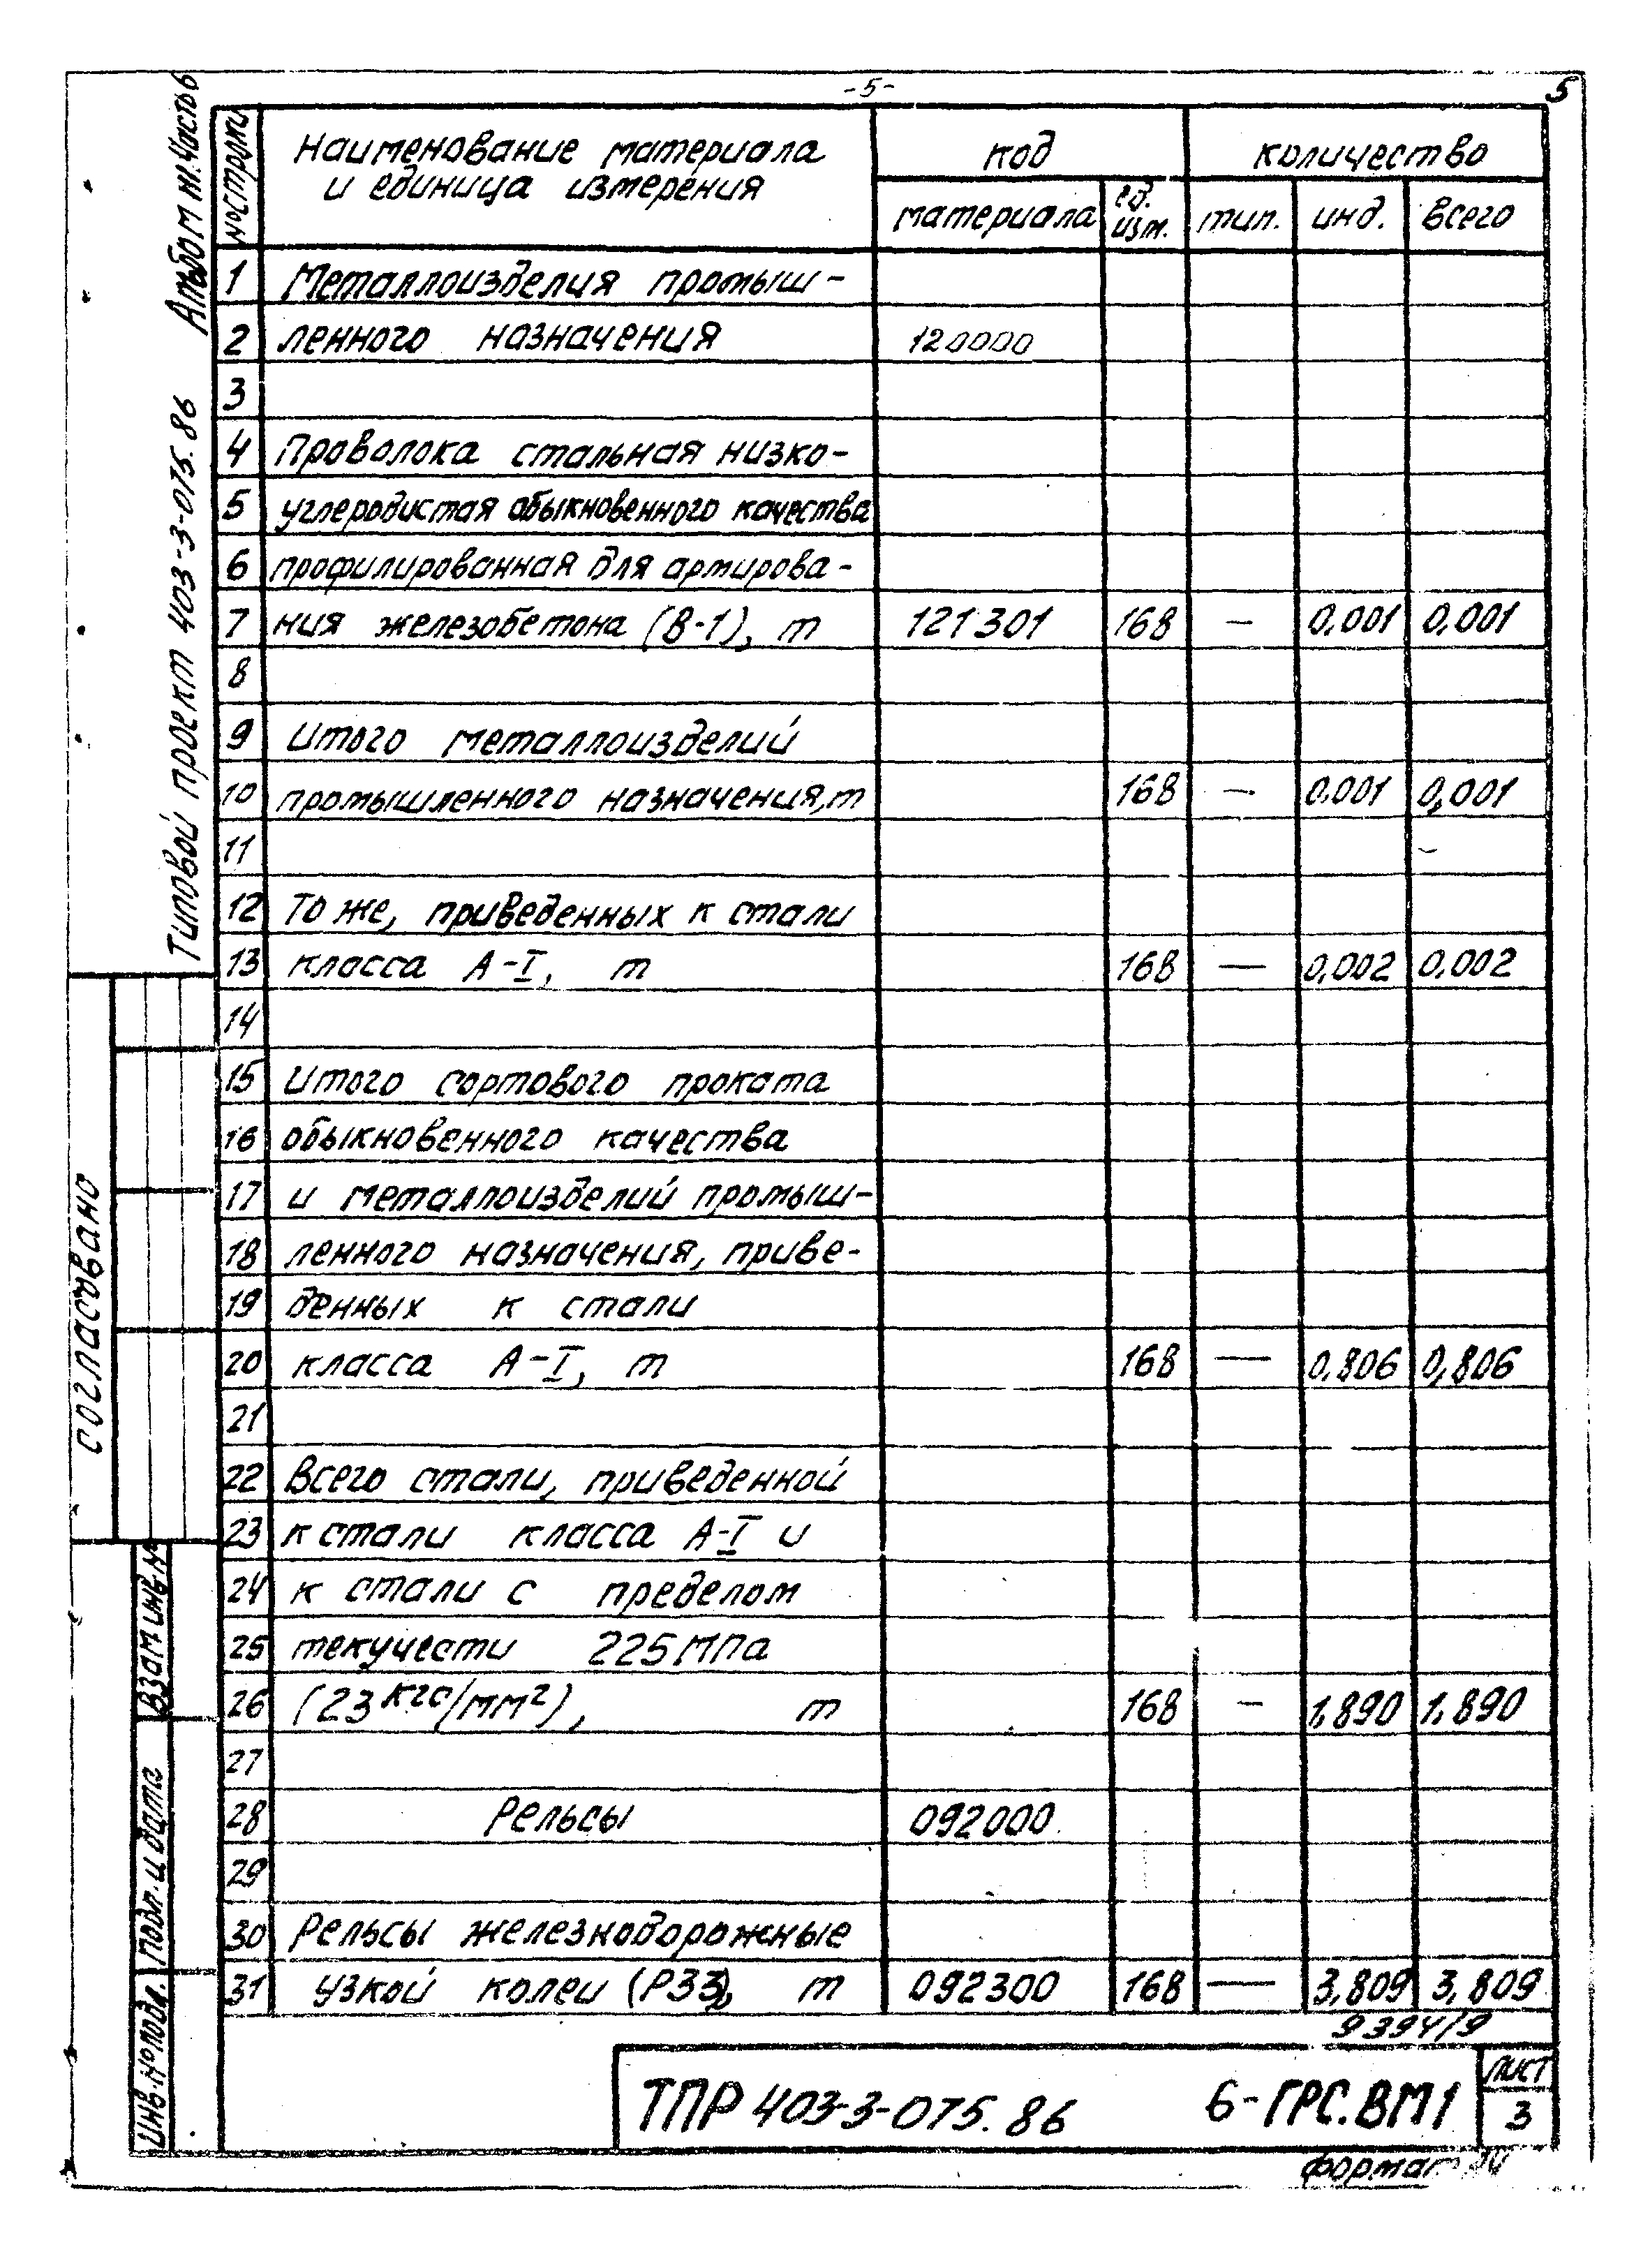 -5-
5
Альбом III. Часть 6
Типовой проект 403-3-075.86
№ строки
Наименование материала
и единица измерения
код
количество
материала
ед.
изм.
тип.
инд.
всего
1 Металлоизделия промыш-
2 ленного назначения 120000
3
4 Проволока стальная низко-
5 углеродистая обыкновенного качества
6 профилированная для армирова-
7 ния железобетона (В-1), т 121301 168 — 0,001 0,001
8
9 Итого металлоизделий
10 промышленного назначения, т 168 — 0,001 0,001
11
12 То же, приведенных к стали
13 класса А-I, т 168 — 0,002 0,002
14
15 Итого сортового проката
16 обыкновенного качества
17 и металлоизделий промыш-
18 ленного назначения, приве-
19 денных к стали
20 класса А-I, т 168 — 0,806 0,806
21
22 Всего стали, приведенной
23 к стали класса А-I и
24 к стали с пределом
25 текучести 225 МПа
26 (23 кгс/мм²), т 168 — 1,890 1,890
27
28 Рельсы 092000
29
30 Рельсы железнодорожные
31 узкой колеи (Р33), т 092300 168 — 3,809 3,809
согласовано
Взам инв №
Подп. и дата
Инв. № подл.
9394/9
ТПР 403-3-075.86 6-ГРС.ВМ1
Лист
3
формат А4